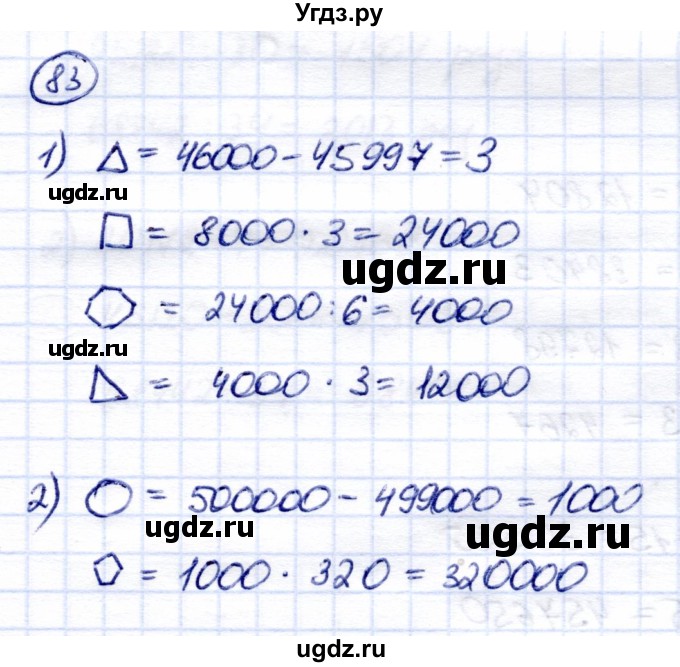 Угдз.ру
83
1) △ = 46000 - 45997 = 3
ugdz.ru
□ = 8000 · 3 = 24000
ugdz.ru
⬡ = 24000 : 6 = 4000
ugdz.ru
◺ = 4000 · 3 = 12000
2) ○ = 500000 - 499000 = 1000
ugdz.ru ugdz.ru
⬠ = 1000 · 320 = 320000
ugdz.ru